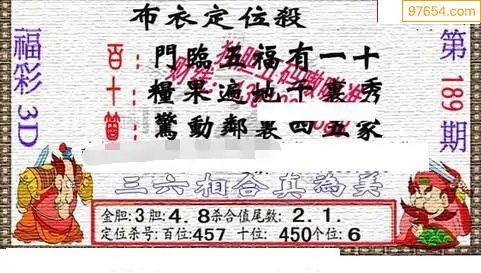 97654.com
布衣定位殺
福彩3D
第189期
百：門臨五福有一十
十：糧果遍地千裏秀
個：驚動鄰裏四五家
三六相合真為美
金胆:3胆:4.8杀合值尾数:2.1.
定位杀号:百位:457 十位:450个位:6